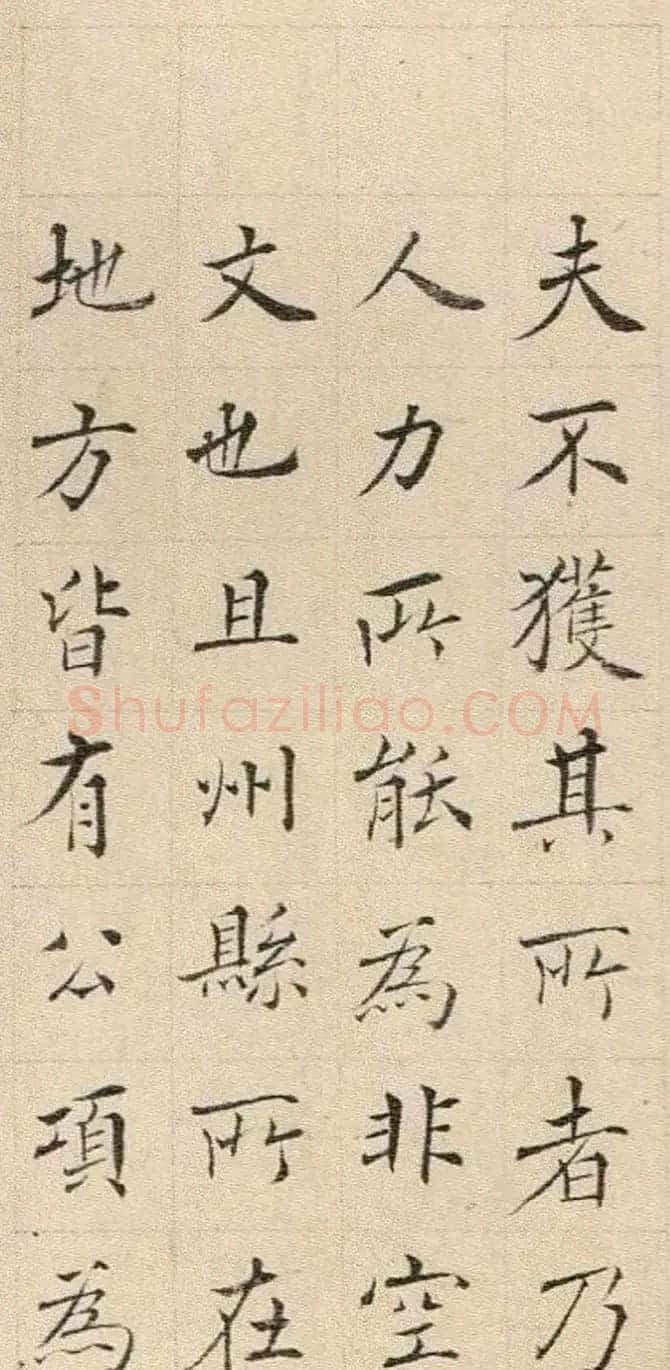 夫不獲其所者乃
人力所能為非空
文也且州縣所在
地方皆有公項為
Shufaziliao.COM